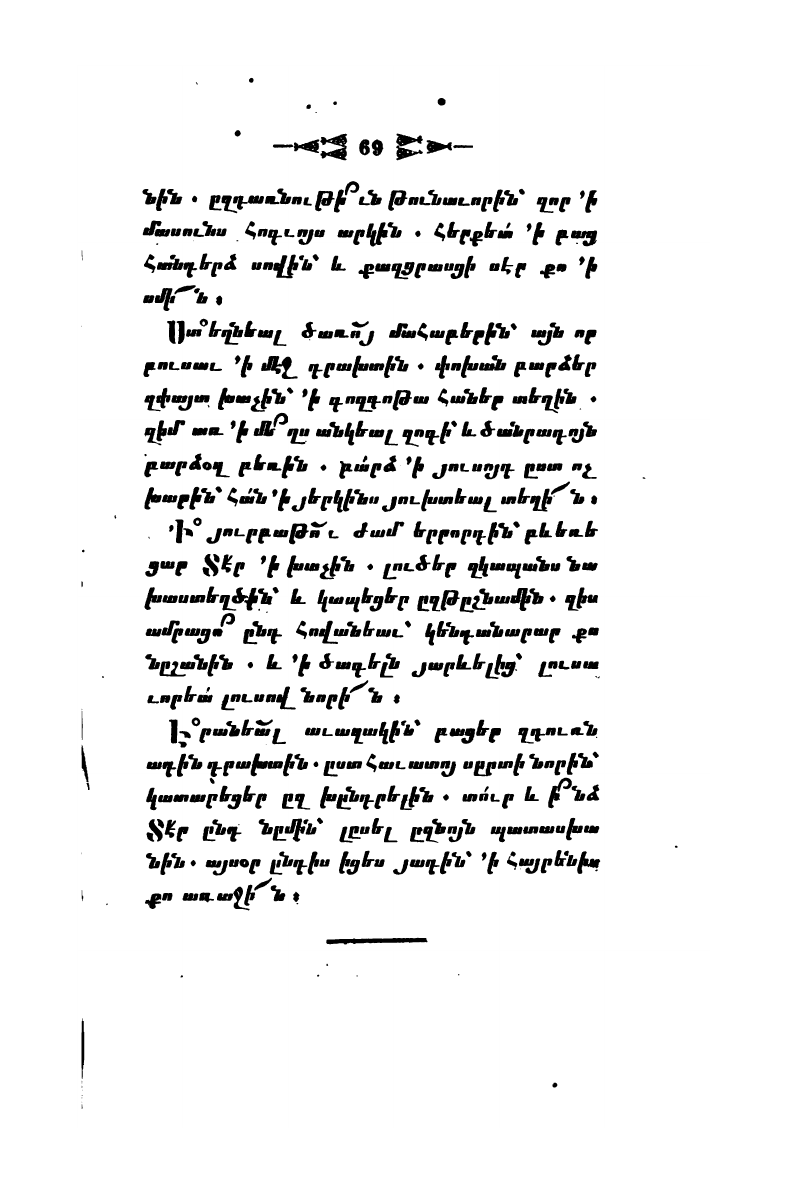 69
նին. ըզդառնութի՟ւն թունաւորին՝ զոր ՚ի
մասունս հոգւոյս արկին. հերքեա՛ ՚ի բաց
հանդերձ սովին՝ և քաղցրասցի սէր քո ՚ի
սմի՜ն։
Ստեղնեալ ծառո՟յ մահաբերին՝ այն որ
բուսաւ ՚ի մէջ դրախտին. փոխան բարձեր
զփայտ խաչին՝ ՚ի գողգոթա հաներ տեղին.
զիմ առ ՚ի մե՟ղս անկեալ զոգի՝ և ծանրագոյն
բարձօղ բեռին. բա՛րձ ՚ի յուսոյդ ըստ ոչ
խաբին՝ հա՛ն ՚ի յերկինս յուխտեալ տեղի՜ն։
՚Ի յուրբաթո՟ւ ժամ երրորդին՝ բևեռե
ցար Տէր ՚ի խաչին. լուծեր զկապանս նա
խաստեղծին՝ և կապեցեր ըզթըշնամին. զիս
ամրացո՟ ընդ հովանեաւ՝ կենդանարար քո
նըշանին. և ՚ի ծագելն յարևելից՝ լուսա
ւորեա՛ լուսով նորի՜ն։
Երանեա՟լ աւազակին՝ բացեր զդուռն
ադին դրախտին. ըստ հաւատոյ սըրտի նորին՝
կատարեցեր ըզ խընդրելին. տո՛ւր և ի՟նձ
Տէր ընդ նըմին՝ լըսել ըզնոյն պատասխա
նին. այսօր ընդիս իցես յադին՝ ՚ի հայրենիս
քո առաջի՜ն։